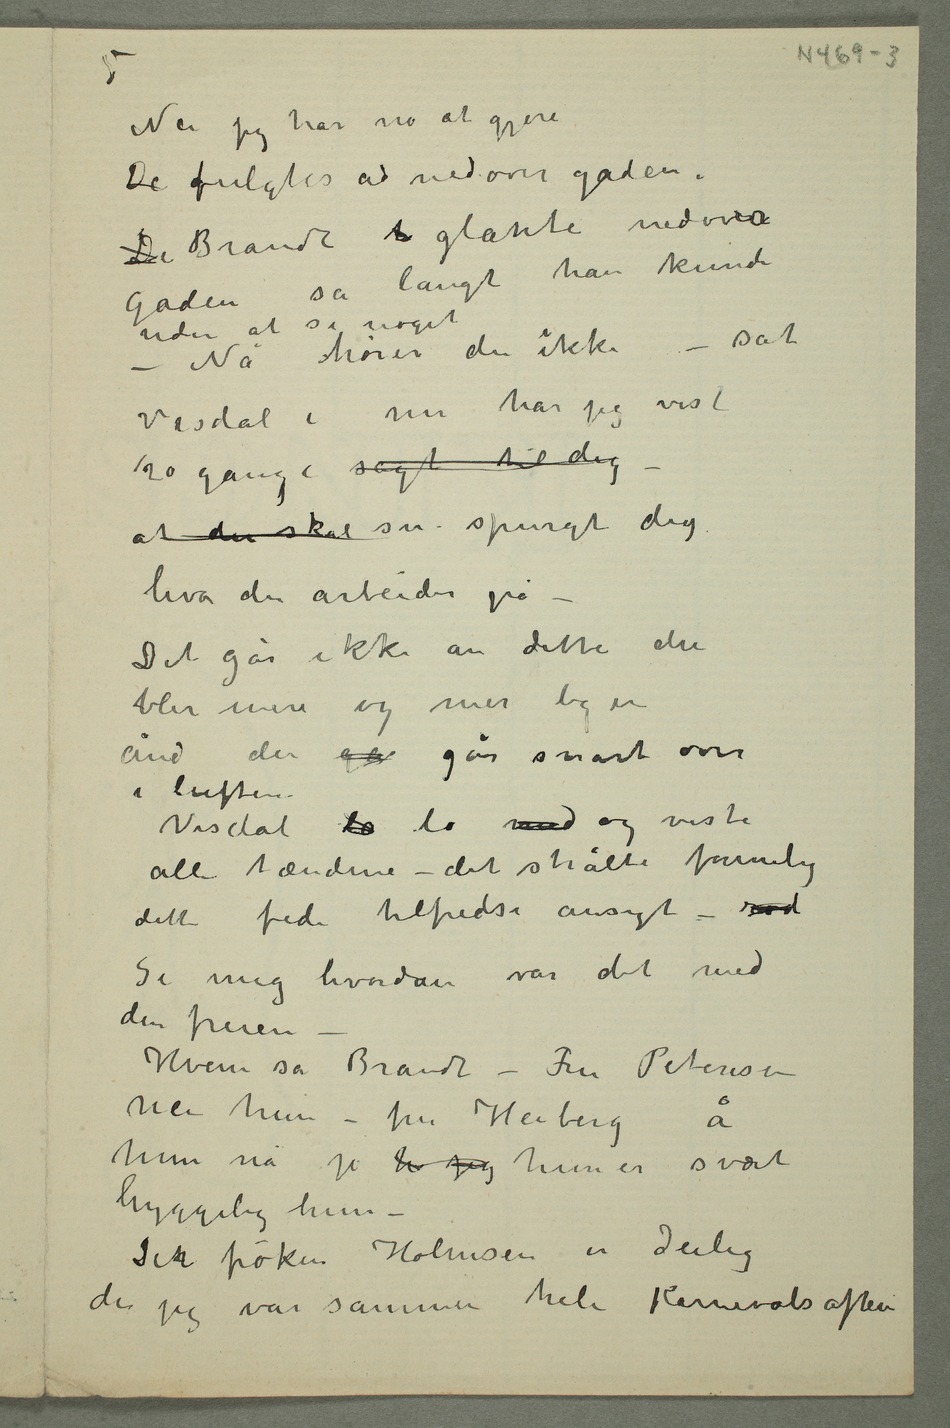 5
N469-3
Nei jeg har no at gjøre
De fulgtes ad nedover gaden.
De Brandt t glante nedover
gaden så langt han kunde
uden at se noget
– Nå hører du ikke – sat
Visdal i nu har jeg vist
20 gange sagt til dig –
at du skal su spurgt dig
hva du arbeider på –
Det går ikke an dette du
bler mere og mer
ånd du ga går snart over
i luften
Visdal lo lo med og viste
alle tænderne – det strålte formelig
dette fede tilfredse ansigt – rød
Se mig hvordan var det med
den fruen –
Hvem sa Brandt – Fru Petersen
nei hun – fru Heiberg å
hun nå jo h jeg hun er svært
hyggelig hun –
Se frøken Holmsen er deilig
der jeg var sammen hele Karnevalsaften